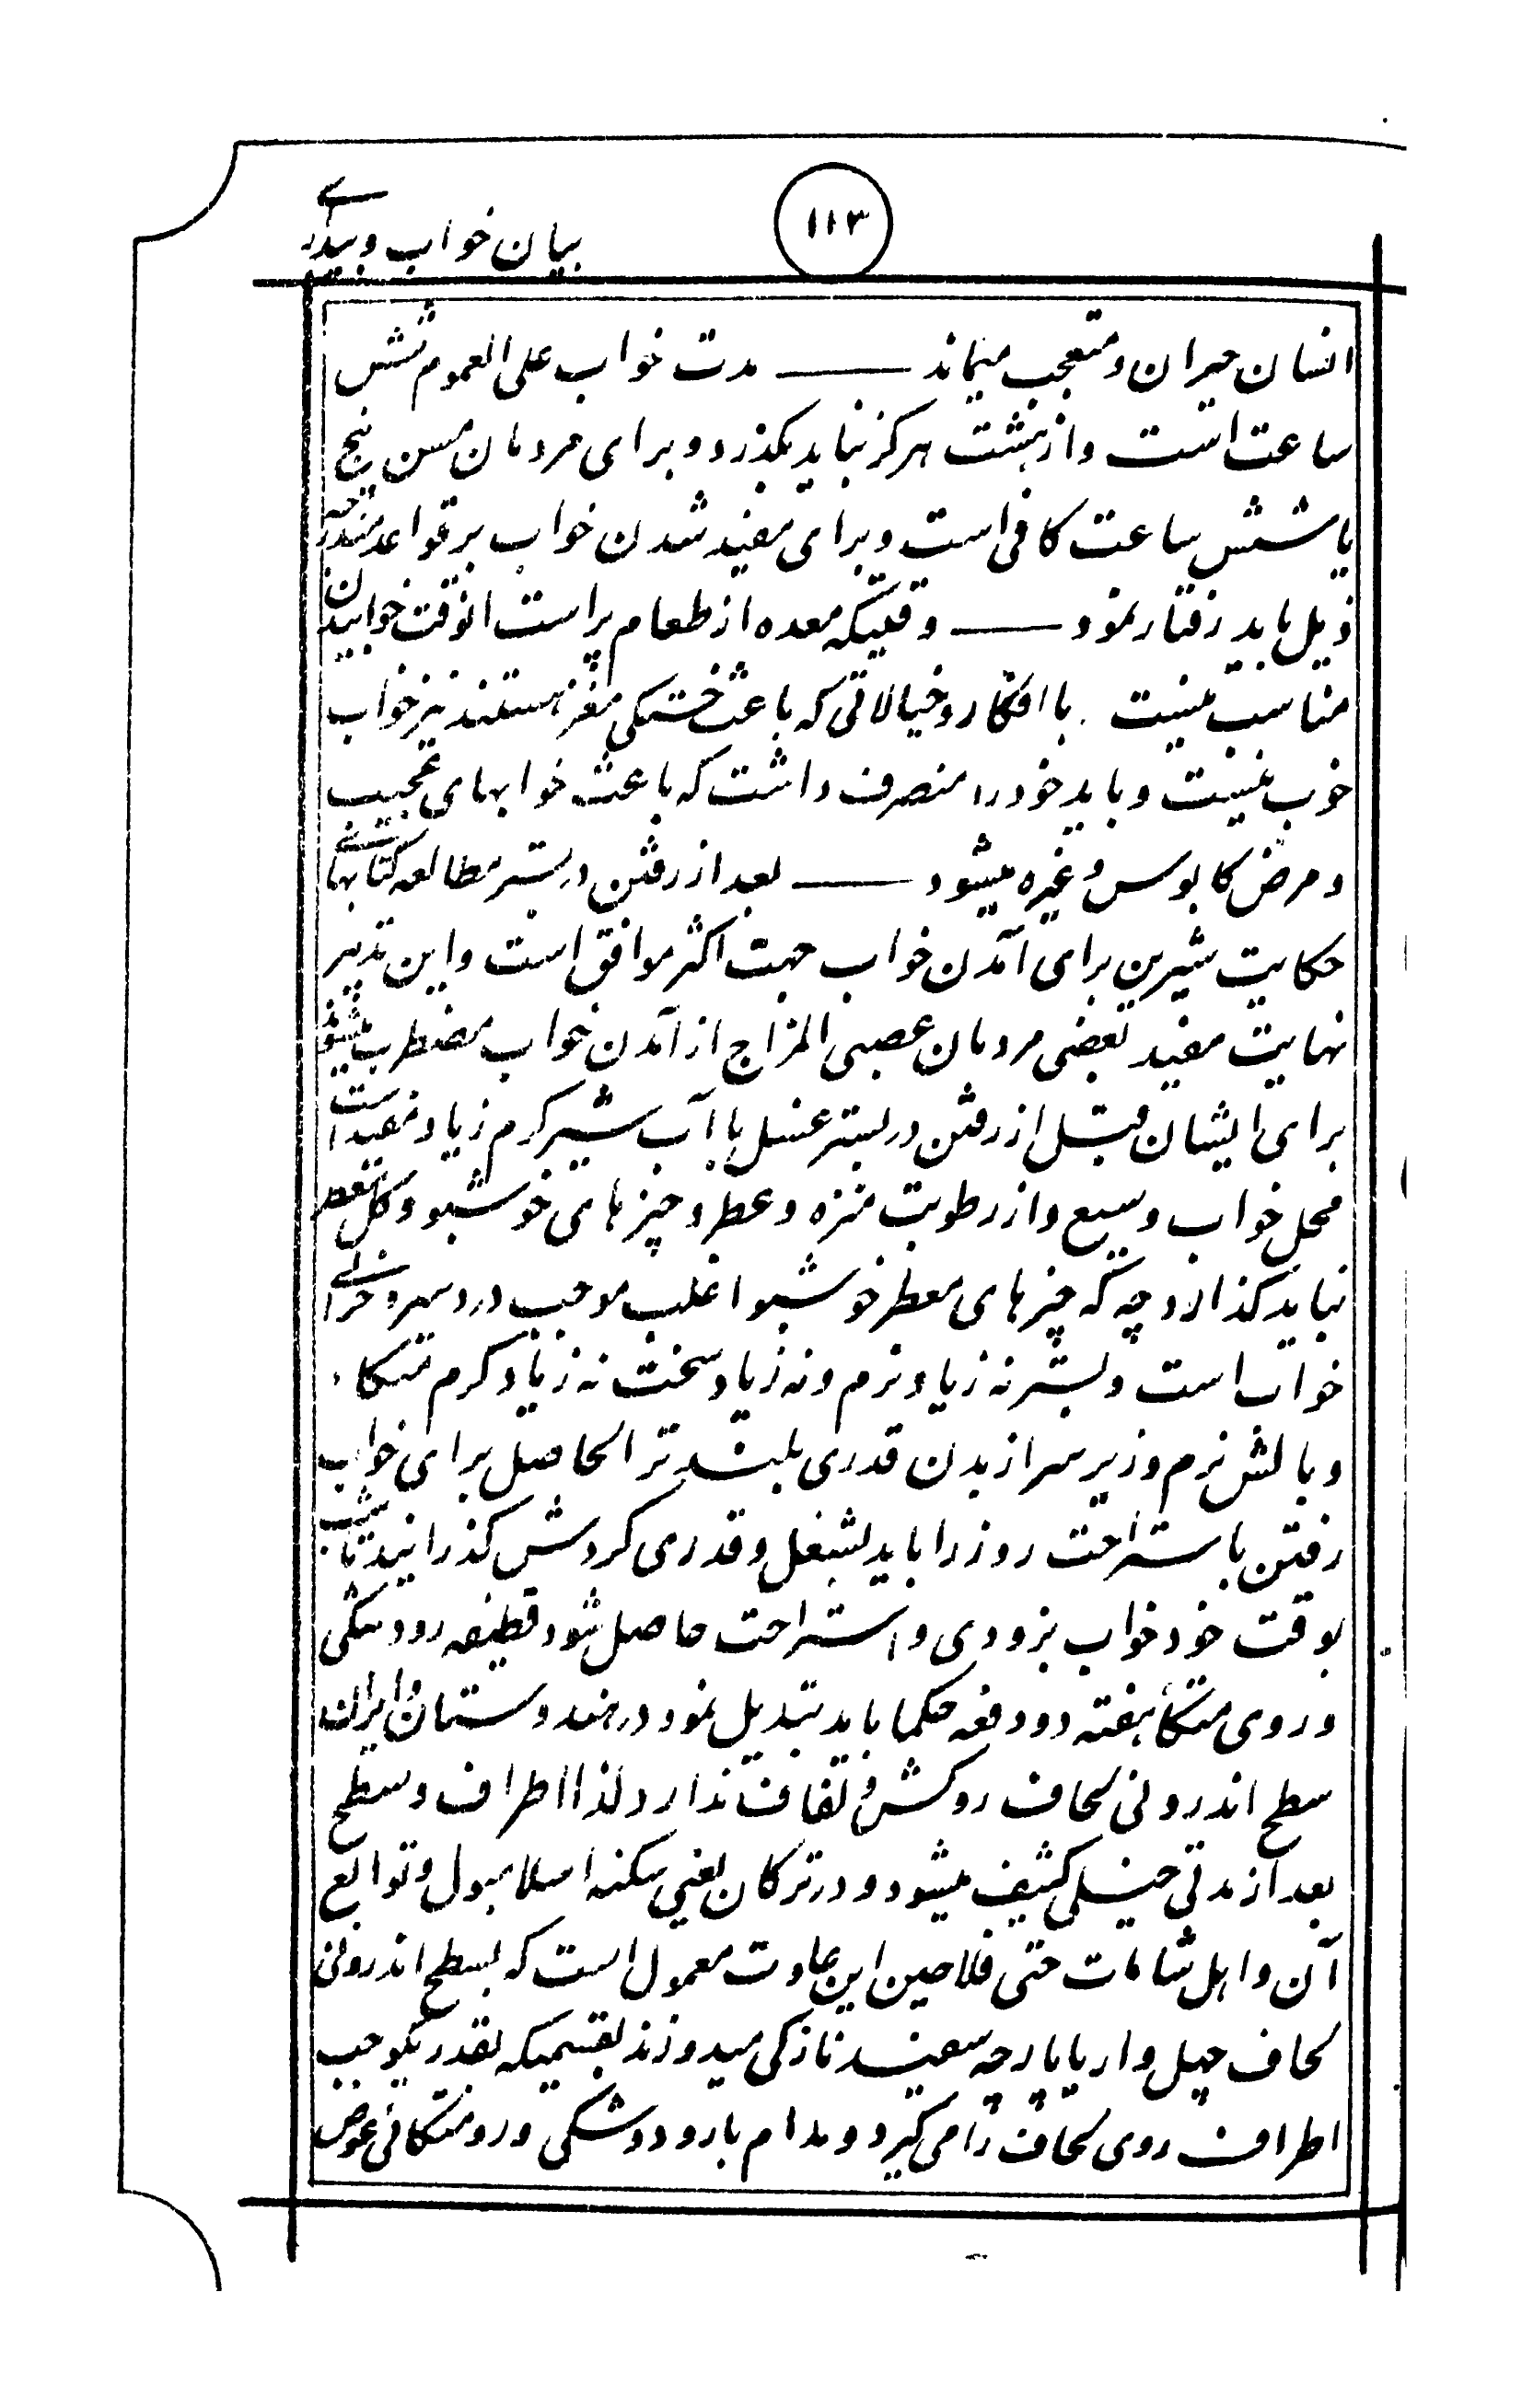 بیان خواب و بیداری
۱۱۳
انسان حیران و متعجب میماند —— مدت خواب علی العموم شش
ساعت است و از هشت هرکز نباید بکذرد و برای مردمان مسن پنج
یا شش ساعت کافی است و برای مفید شدن خواب بر قواعد مندرجه
ذیل باید رفتار نمود —— وقتیکه معده از طعام پر است انوقت خوابیدن
مناسب نیست . با افکار و خیالاتی که باعث خشکی مغز هستند نیز خواب
خوب نیست و باید خود را منصرف داشت که باعث خوابهای عجیب
و مرض کابوس و غیره میشود —— بعد از رفتن در بستر مطالعه کتابهای
حکایت شیرین برای آمدن خواب جهت اکثر موافق است و این تدبیر
نهایت مفید بعضی مردمان عصبی المزاج از آمدن خواب مضطرب میشوند
برای ایشان قبل از رفتن در بستر غسل با آب شیر کرم زیاد مفید است
محل خواب وسیع و از رطوبت منزه و عطر و چیزهای خوشبو و کل معطر
نباید کذارد چه که چیزهای معطر خوشبو اغلب موجب درد سر و خرابی
خواب است و بستر نه زیاد نرم و نه زیاد سخت نه زیاد کرم متکاء
و بالش نرم و زیر سر از بدن قدری بلند تر الحاصل برای خواب
رفتن باستراحت روز را باید بشغل و قدری کردش کذرانید تا شب
بوقت خود خواب بزودی و استراحت حاصل شود قطیفه رودشکی
و روی متکا هفته دو دفعه حکما باید تبدیل نمود در هندوستان و ایران
سطح اندرونی لحاف روکش و لفاف ندارد لذا اطراف و سطح
بعد از مدتی خیلی کثیف میشود و در ترکان یعنی سکنه اسلامبول و توابع
آن و اهل شامات حتی فلاحین این عادت معمول است که بسطح اندرونی
لحاف چیل وار یا پارچه سفید نازکی میدوزند بقسمیکه بقدر یکوجب
اطراف روی لحاف را می کیرد و مدام با رودوشکی و رومتکائی عوض